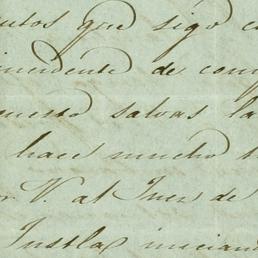 utos que sigo c
incidente de com
puesto salvas la
hace mucho t
r. V. al Juez de
Tustla inician